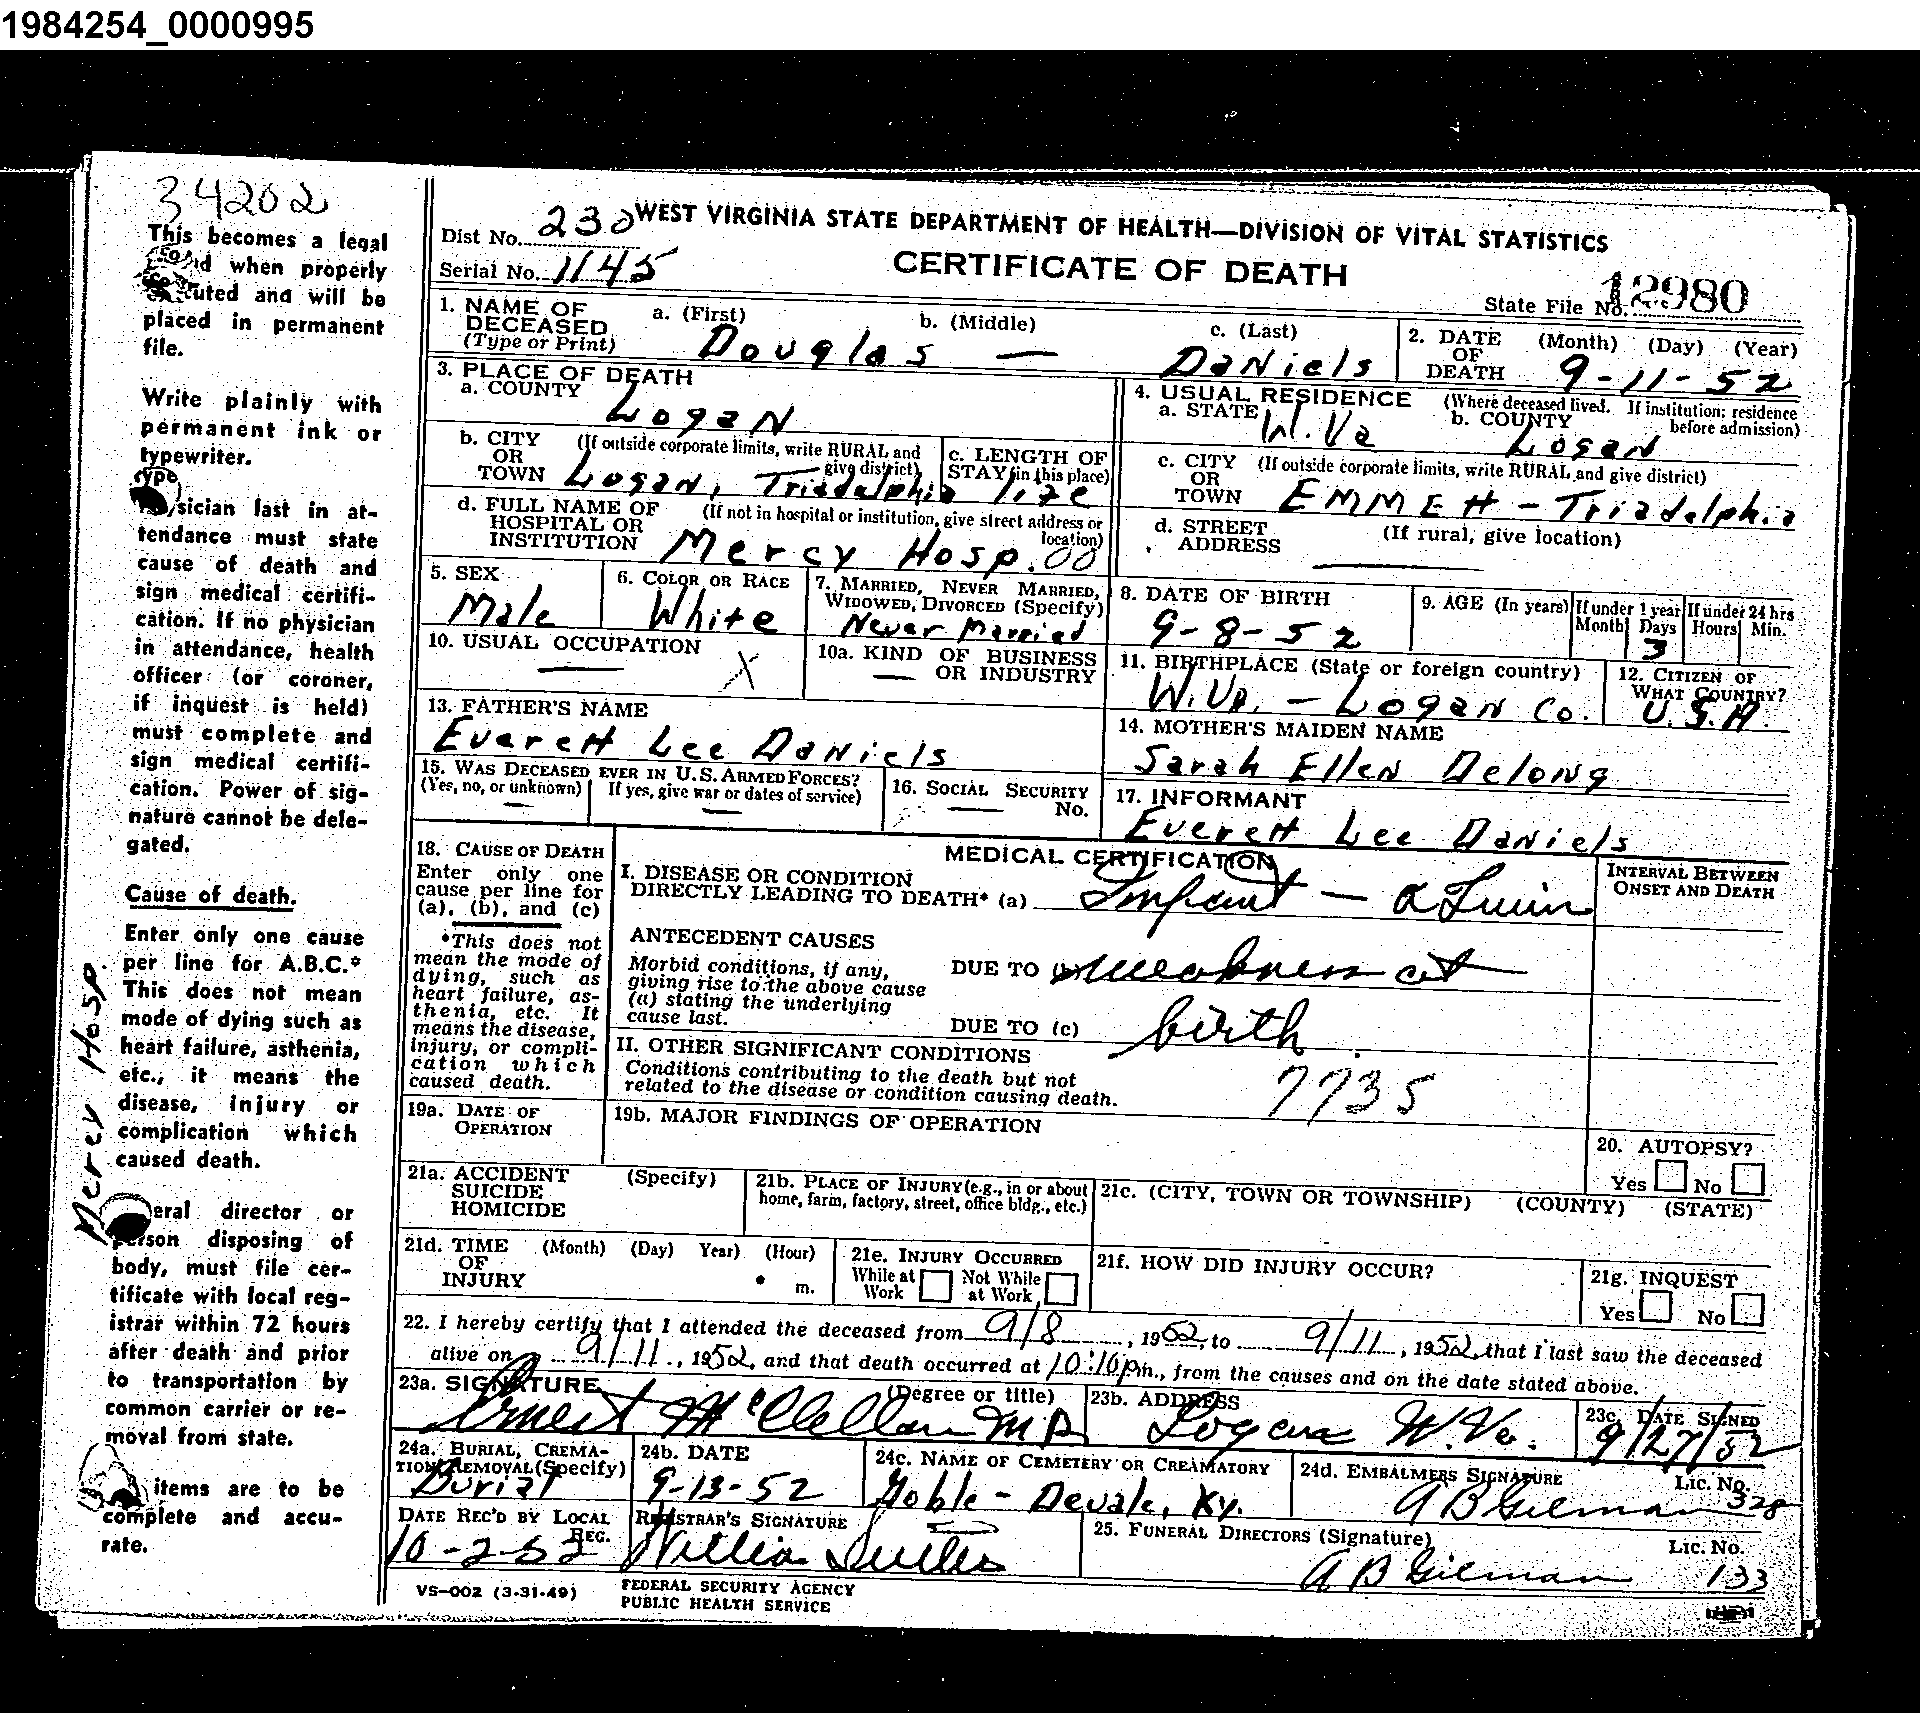 1984254_0000995
34202
This becomes a legal
when properly
and will be
placed in permanent
file.
Write plainly with
permanent ink or
typewriter.
Type
sician last in at-
tendance must state
cause of death and
sign medical certifi-
cation. If no physician
in attendance, health
officer (or coroner,
if inquest is held)
must complete and
sign medical certifi-
cation. Power of sig-
nature cannot be dele-
gated.
Cause of death.
Enter only one cause
per line for A.B.C.*
This does not mean
mode of dying such as
heart failure, asthenia,
etc., it means the
disease, injury or
complication which
caused death.
eral director or
person disposing of
body, must file cer-
tificate with local reg-
istrar within 72 hours
after death and prior
to transportation by
common carrier or re-
moval from state.
items are to be
complete and accu-
rate.
Mercy Hosp.
WEST VIRGINIA STATE DEPARTMENT OF HEALTH—DIVISION OF VITAL STATISTICS
Dist No. 230
Serial No. 1145
CERTIFICATE OF DEATH
State File No. 12980
1. NAME OF DECEASED (Type or Print) a. (First) b. (Middle) c. (Last)
Douglas — Daniels
2. DATE OF DEATH (Month) (Day) (Year)
9-11-52
3. PLACE OF DEATH
a. COUNTY Logan
4. USUAL RESIDENCE (Where deceased lived. If institution: residence before admission)
a. STATE W.Va b. COUNTY Logan
b. CITY OR TOWN (If outside corporate limits, write RURAL and give district)
Logan, Triadelphia
c. LENGTH OF STAY (in this place)
life
c. CITY OR TOWN (If outside corporate limits, write RURAL and give district)
Emmett - Triadelphia
d. FULL NAME OF HOSPITAL OR INSTITUTION (If not in hospital or institution, give street address or location)
Mercy Hosp. 00
d. STREET ADDRESS (If rural, give location)
—
5. SEX
Male
6. COLOR OR RACE
White
7. MARRIED, NEVER MARRIED, WIDOWED, DIVORCED (Specify)
Never Married
8. DATE OF BIRTH
9-8-52
9. AGE (In years) If under 1 year Month Days If under 24 hrs Hours Min.
3
10. USUAL OCCUPATION
— X
10a. KIND OF BUSINESS OR INDUSTRY
—
11. BIRTHPLACE (State or foreign country)
W.Va. - Logan Co.
12. CITIZEN OF WHAT COUNTRY?
U.S.A.
13. FATHER'S NAME
Everett Lee Daniels
14. MOTHER'S MAIDEN NAME
Sarah Ellen Delong
15. WAS DECEASED EVER IN U.S. ARMED FORCES?
(Yes, no, or unknown) If yes, give war or dates of service)
— —
16. SOCIAL SECURITY No.
—
17. INFORMANT
Everett Lee Daniels
18. CAUSE OF DEATH
Enter only one
cause per line for
(a), (b), and (c)
*This does not
mean the mode of
dying, such as
heart failure, as-
thenia, etc. It
means the disease,
injury, or compli-
cation which
caused death.
MEDICAL CERTIFICATION
INTERVAL BETWEEN ONSET AND DEATH
I. DISEASE OR CONDITION
DIRECTLY LEADING TO DEATH* (a) Infant — a Twin
ANTECEDENT CAUSES
Morbid conditions, if any,
giving rise to the above cause
(a) stating the underlying
cause last.
DUE TO (b) weakness at
DUE TO (c) birth
II. OTHER SIGNIFICANT CONDITIONS
Conditions contributing to the death but not
related to the disease or condition causing death.
7735
19a. DATE OF OPERATION
19b. MAJOR FINDINGS OF OPERATION
20. AUTOPSY?
Yes No
21a. ACCIDENT SUICIDE HOMICIDE (Specify)
21b. PLACE OF INJURY (e.g., in or about home, farm, factory, street, office bldg., etc.)
21c. (CITY, TOWN OR TOWNSHIP) (COUNTY) (STATE)
21d. TIME OF INJURY (Month) (Day) Year) (Hour) m.
21e. INJURY OCCURRED
While at Work Not While at Work
21f. HOW DID INJURY OCCUR?
21g. INQUEST
Yes No
22. I hereby certify that I attended the deceased from 9/8, 1952, to 9/11, 1952, that I last saw the deceased
alive on 9/11, 1952, and that death occurred at 10:10 pm., from the causes and on the date stated above.
23a. SIGNATURE (Degree or title)
Ernest McClellan MD
23b. ADDRESS
Logan W.Va.
23c. DATE SIGNED
9/27/52
24a. BURIAL, CREMATION, REMOVAL (Specify)
Burial
24b. DATE
9-13-52
24c. NAME OF CEMETERY OR CREAMATORY
Goble - Devale, Ky.
24d. EMBALMERS SIGNATURE Lic. No.
A B Gilman 328
DATE REC'D BY LOCAL REG.
10-2-52
REGISTRAR'S SIGNATURE
25. FUNERAL DIRECTORS (Signature) Lic. No.
A B Gilman 133
VS-002 (3-31-49)
FEDERAL SECURITY AGENCY
PUBLIC HEALTH SERVICE